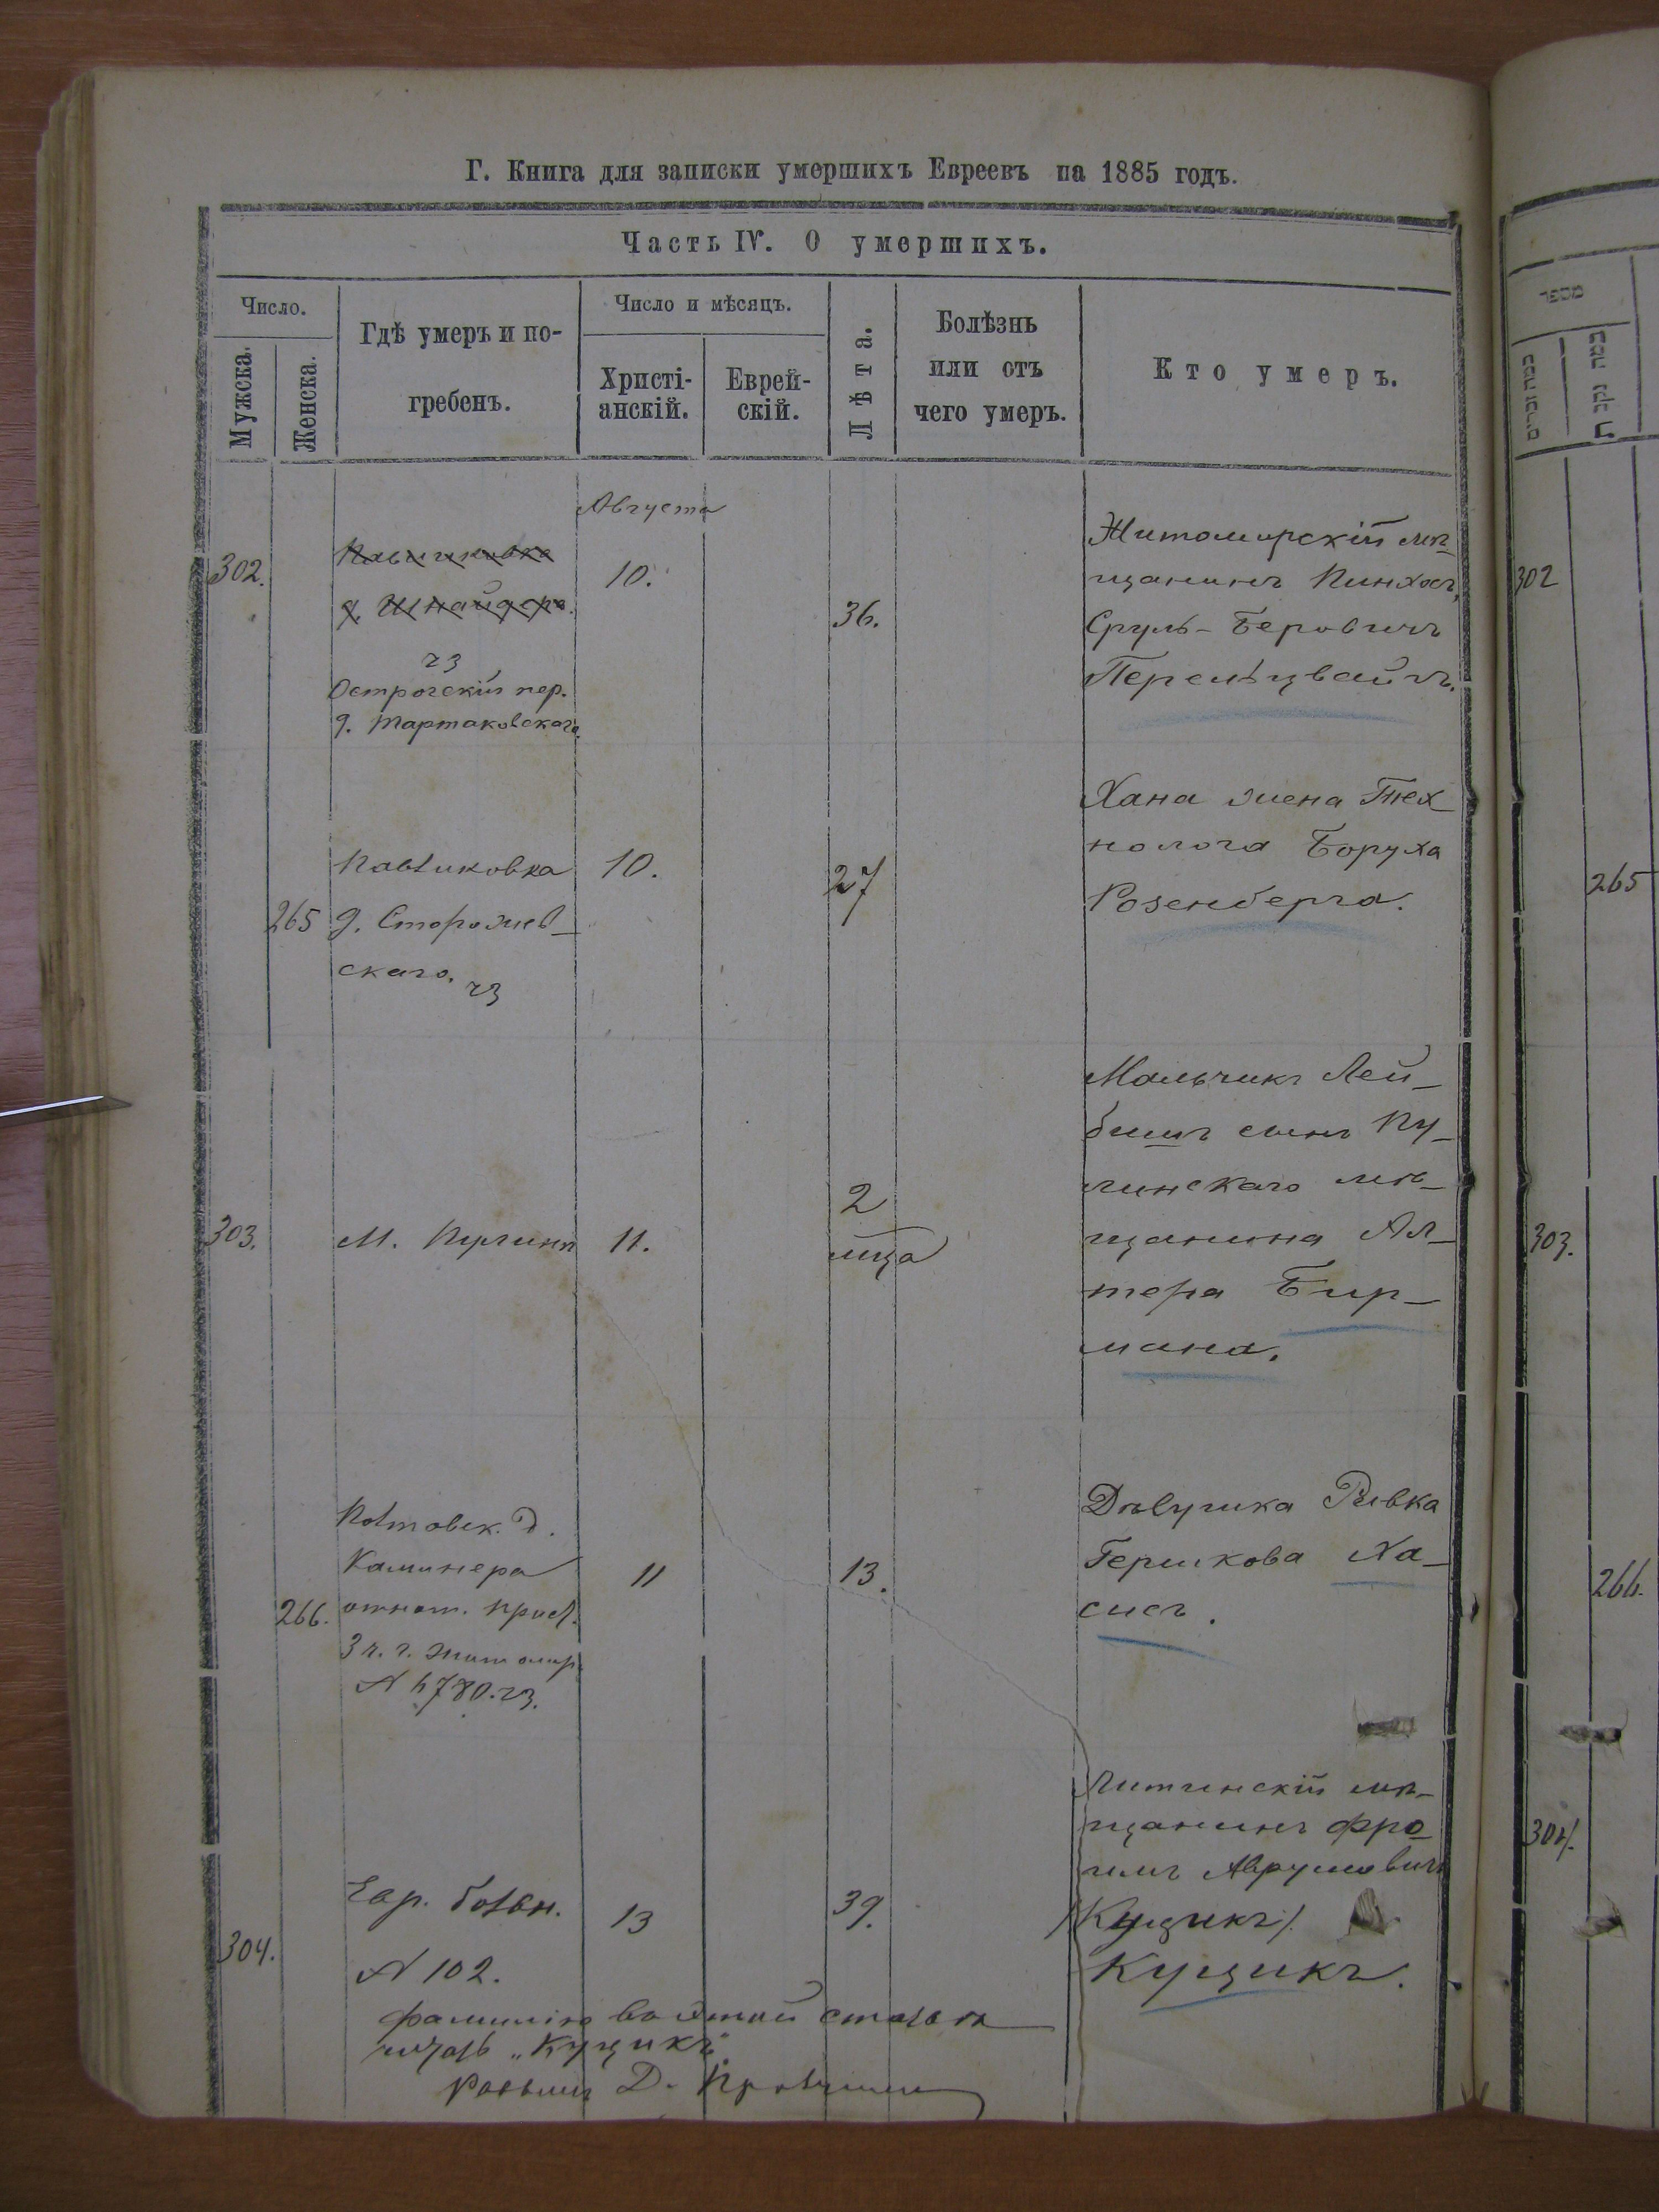 Г. Книга для записки умершихъ Евреевъ на 1885 годъ.
Часть IV. О умершихъ.
Число.
Мужска.
Женска.
Гдѣ умеръ и по-
гребенъ.
Число и мѣсяцъ.
Христі-
анскій.
Еврей-
скій.
Лѣта.
Болѣзнь
или отъ
чего умеръ.
Кто умеръ.
Августа
302.
Павликовка
д. Шнайдера.
чз
Острогскій пер.
д. Тартаковскаго.
10.
36.
Житомирскій мѣ-
щанинъ Пинхосъ,
Сруль-Беровичъ
Перельцвайгъ.
265
Павликовка
д. Сторожев-
скаго. чз
10.
27
Хана жена Тех-
нолога Боруха
Розенберга.
303.
М. Пулинъ
11.
2
мца
Мальчикъ Лей-
бишъ сынъ Пу-
линскаго мѣ-
щанина Ал-
тера Бир-
мана.
266.
Каминера
отнош. прист.
3 ч. г. Житомир.
11
13.
Дѣвушка Ривка
Гершкова Ха-
сисъ.
304.
Евр. больн.
N 102.
13
39.
Литинскій мѣ-
щанинъ Фро-
имъ Аврумовичъ
Кущикъ.
фамилію въ этой статьѣ
читать „Кущикъ"
Раввинъ Д.
302
265
303.
266.
304.
מספר